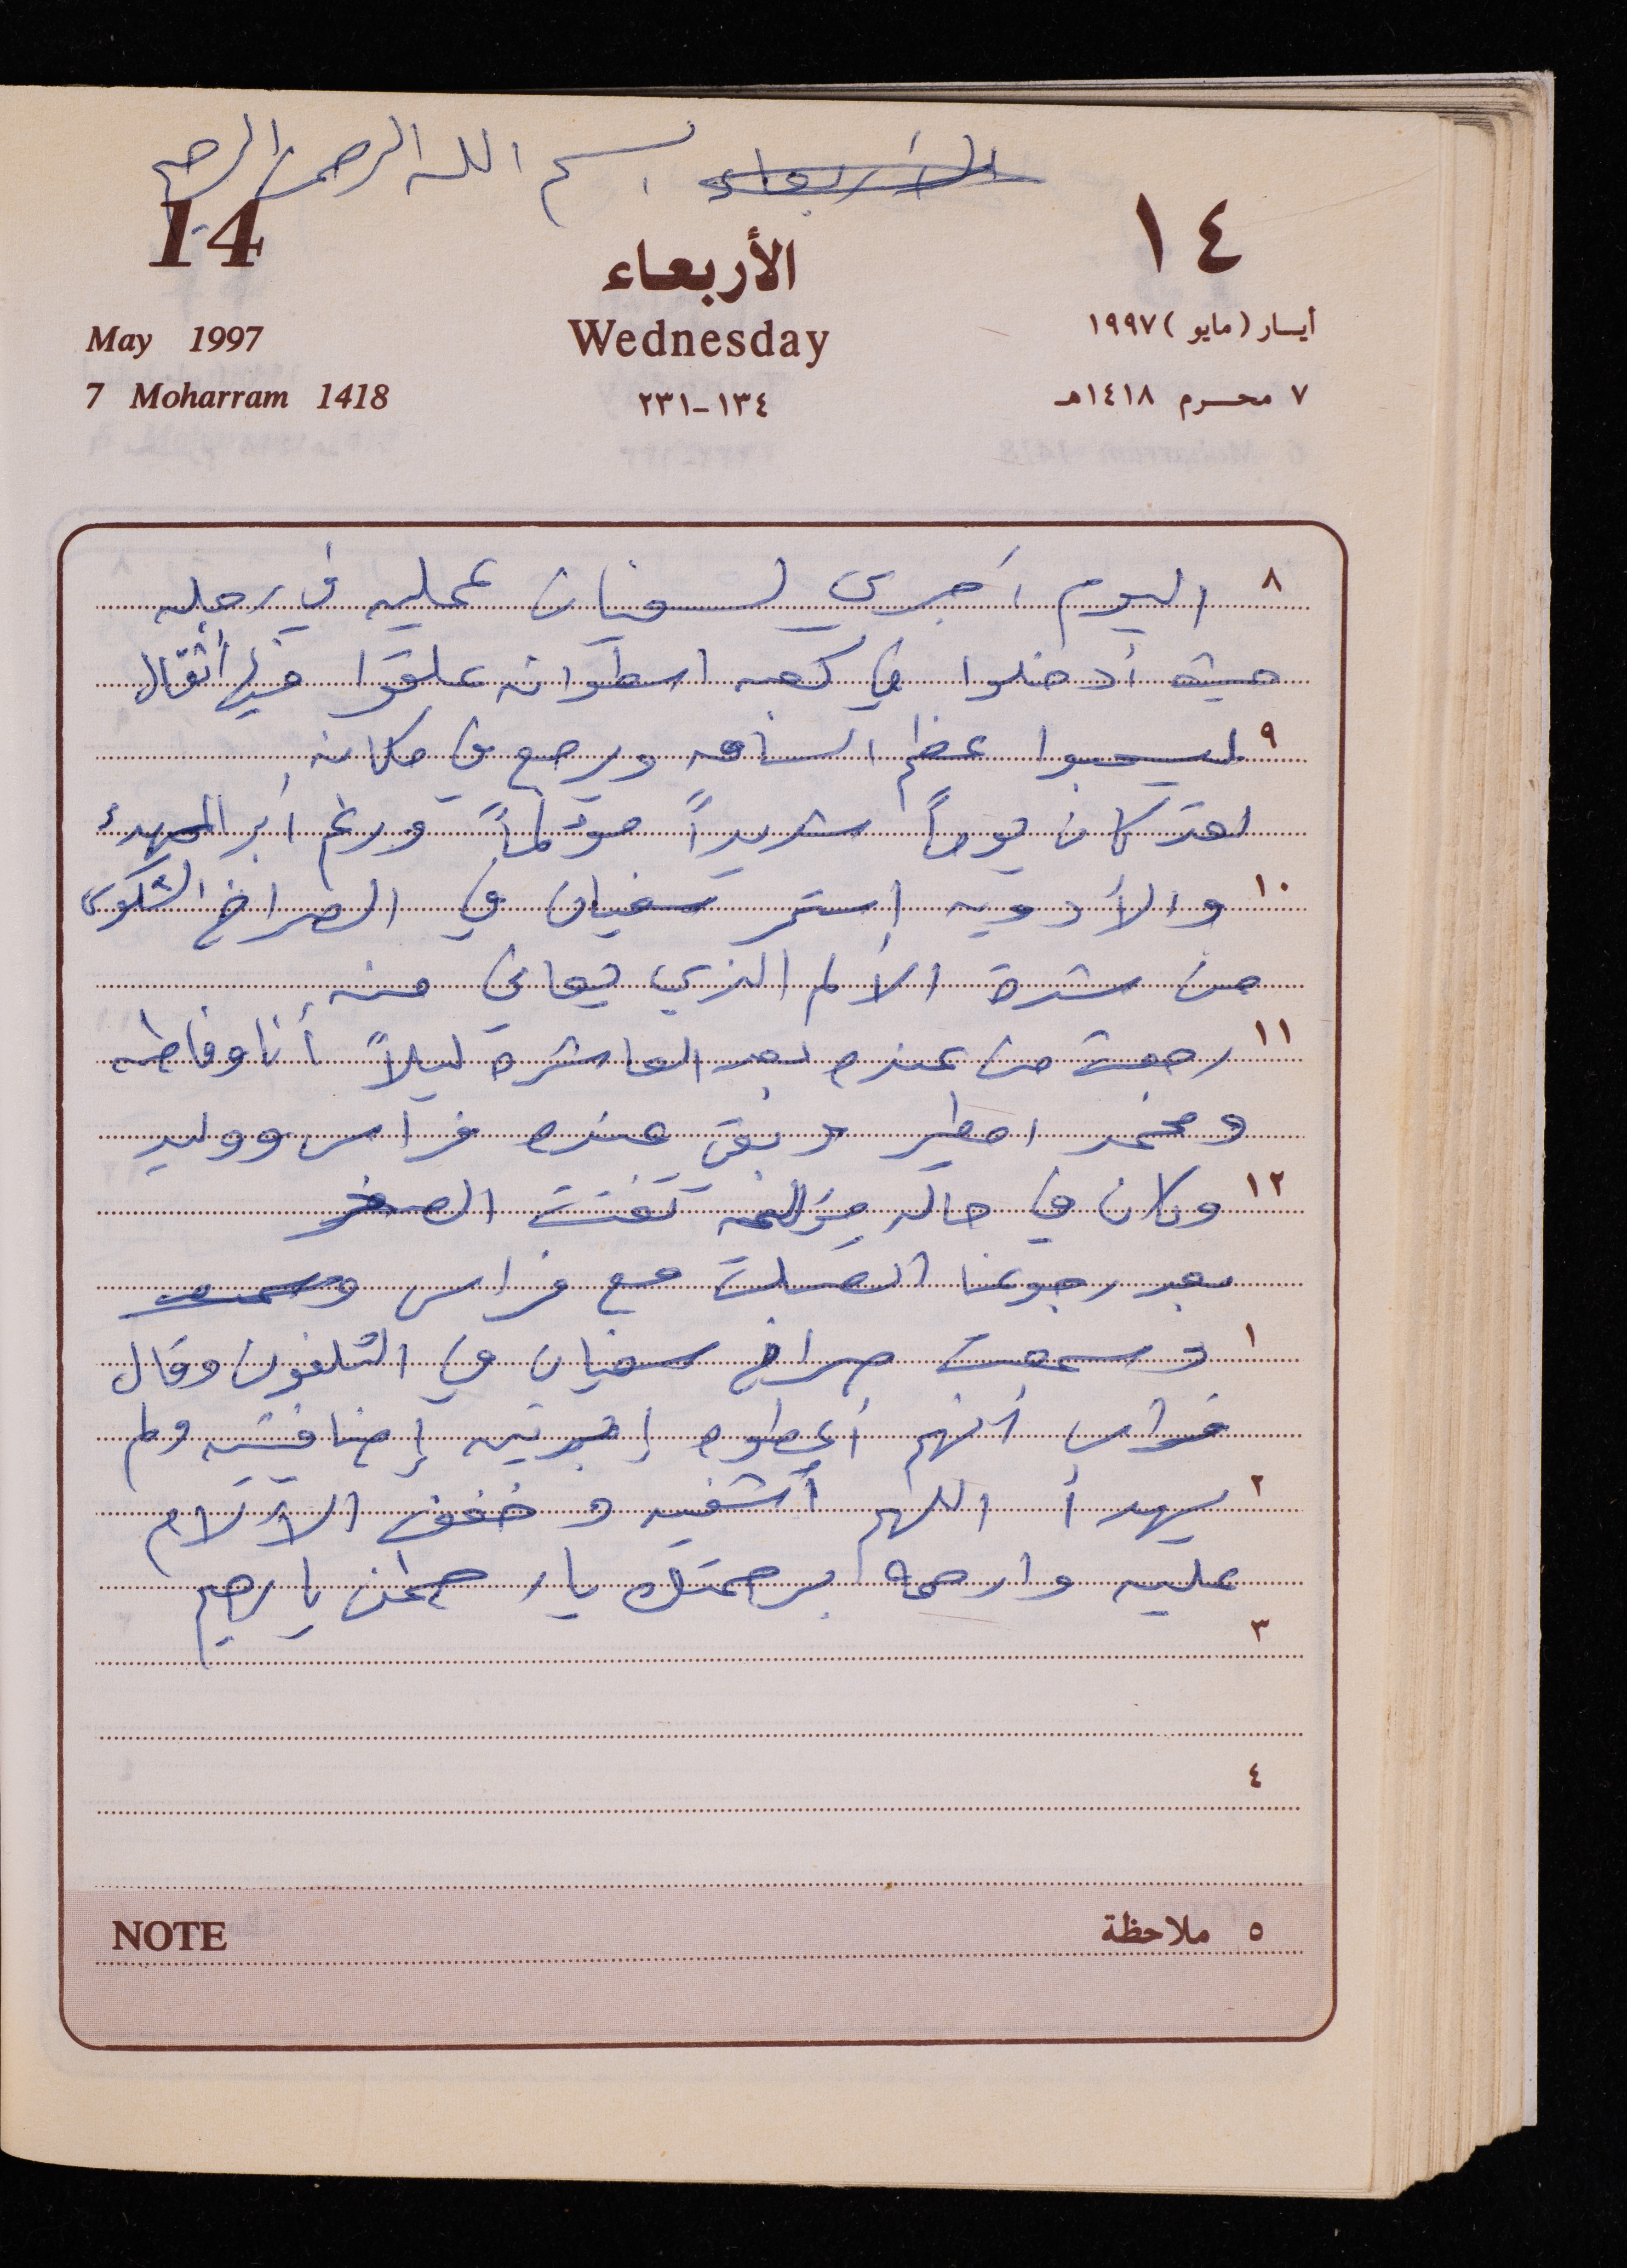 الأربعاء بسم الله الرحمن الرحيم
14 ١٤
الأربعاء
Wednesday
May 1997 أيـار (مايو) ١٩٩٧
7 Moharram 1418 ١٣٤-٢٣١ ٧ محـرم ١٤١٨هـ
٨ اليوم أجري لسفيان عمليه في رجله
حيث أدخلوا في كعبه اسطوانه علقوا فيها أثقال
٩ ليسحبوا عظم الساقه ويرجع في مكانه.
لقد كان يوماً شديداً مؤلماً ورغم أبر المهدء
١٠ والأدويه استمر سفيان في الصراخ الشكوى
من شدة الألم الذي يعاني منه.
١١ رجعت من عنده بعد العاشره ليلاً أنا وفاطمه
ومحمد امطير وبقي عنده فراس ووليد
١٢ وكان في حاله مؤلمه تفتت الصخر
بعد رجوعنا اتصلت مع فراس وسمعت
١ وسمعت صراخ سفيان في التلفون وقال
فراس أنهم أعطوه إبرتين إضافيتيه ولم
٢ يهدأ اللهم أشفيه وخفف الآلام
عليه وارحمه برحمتك يا رحمن يا رحيم
٣
٤
NOTE ٥ ملاحظة